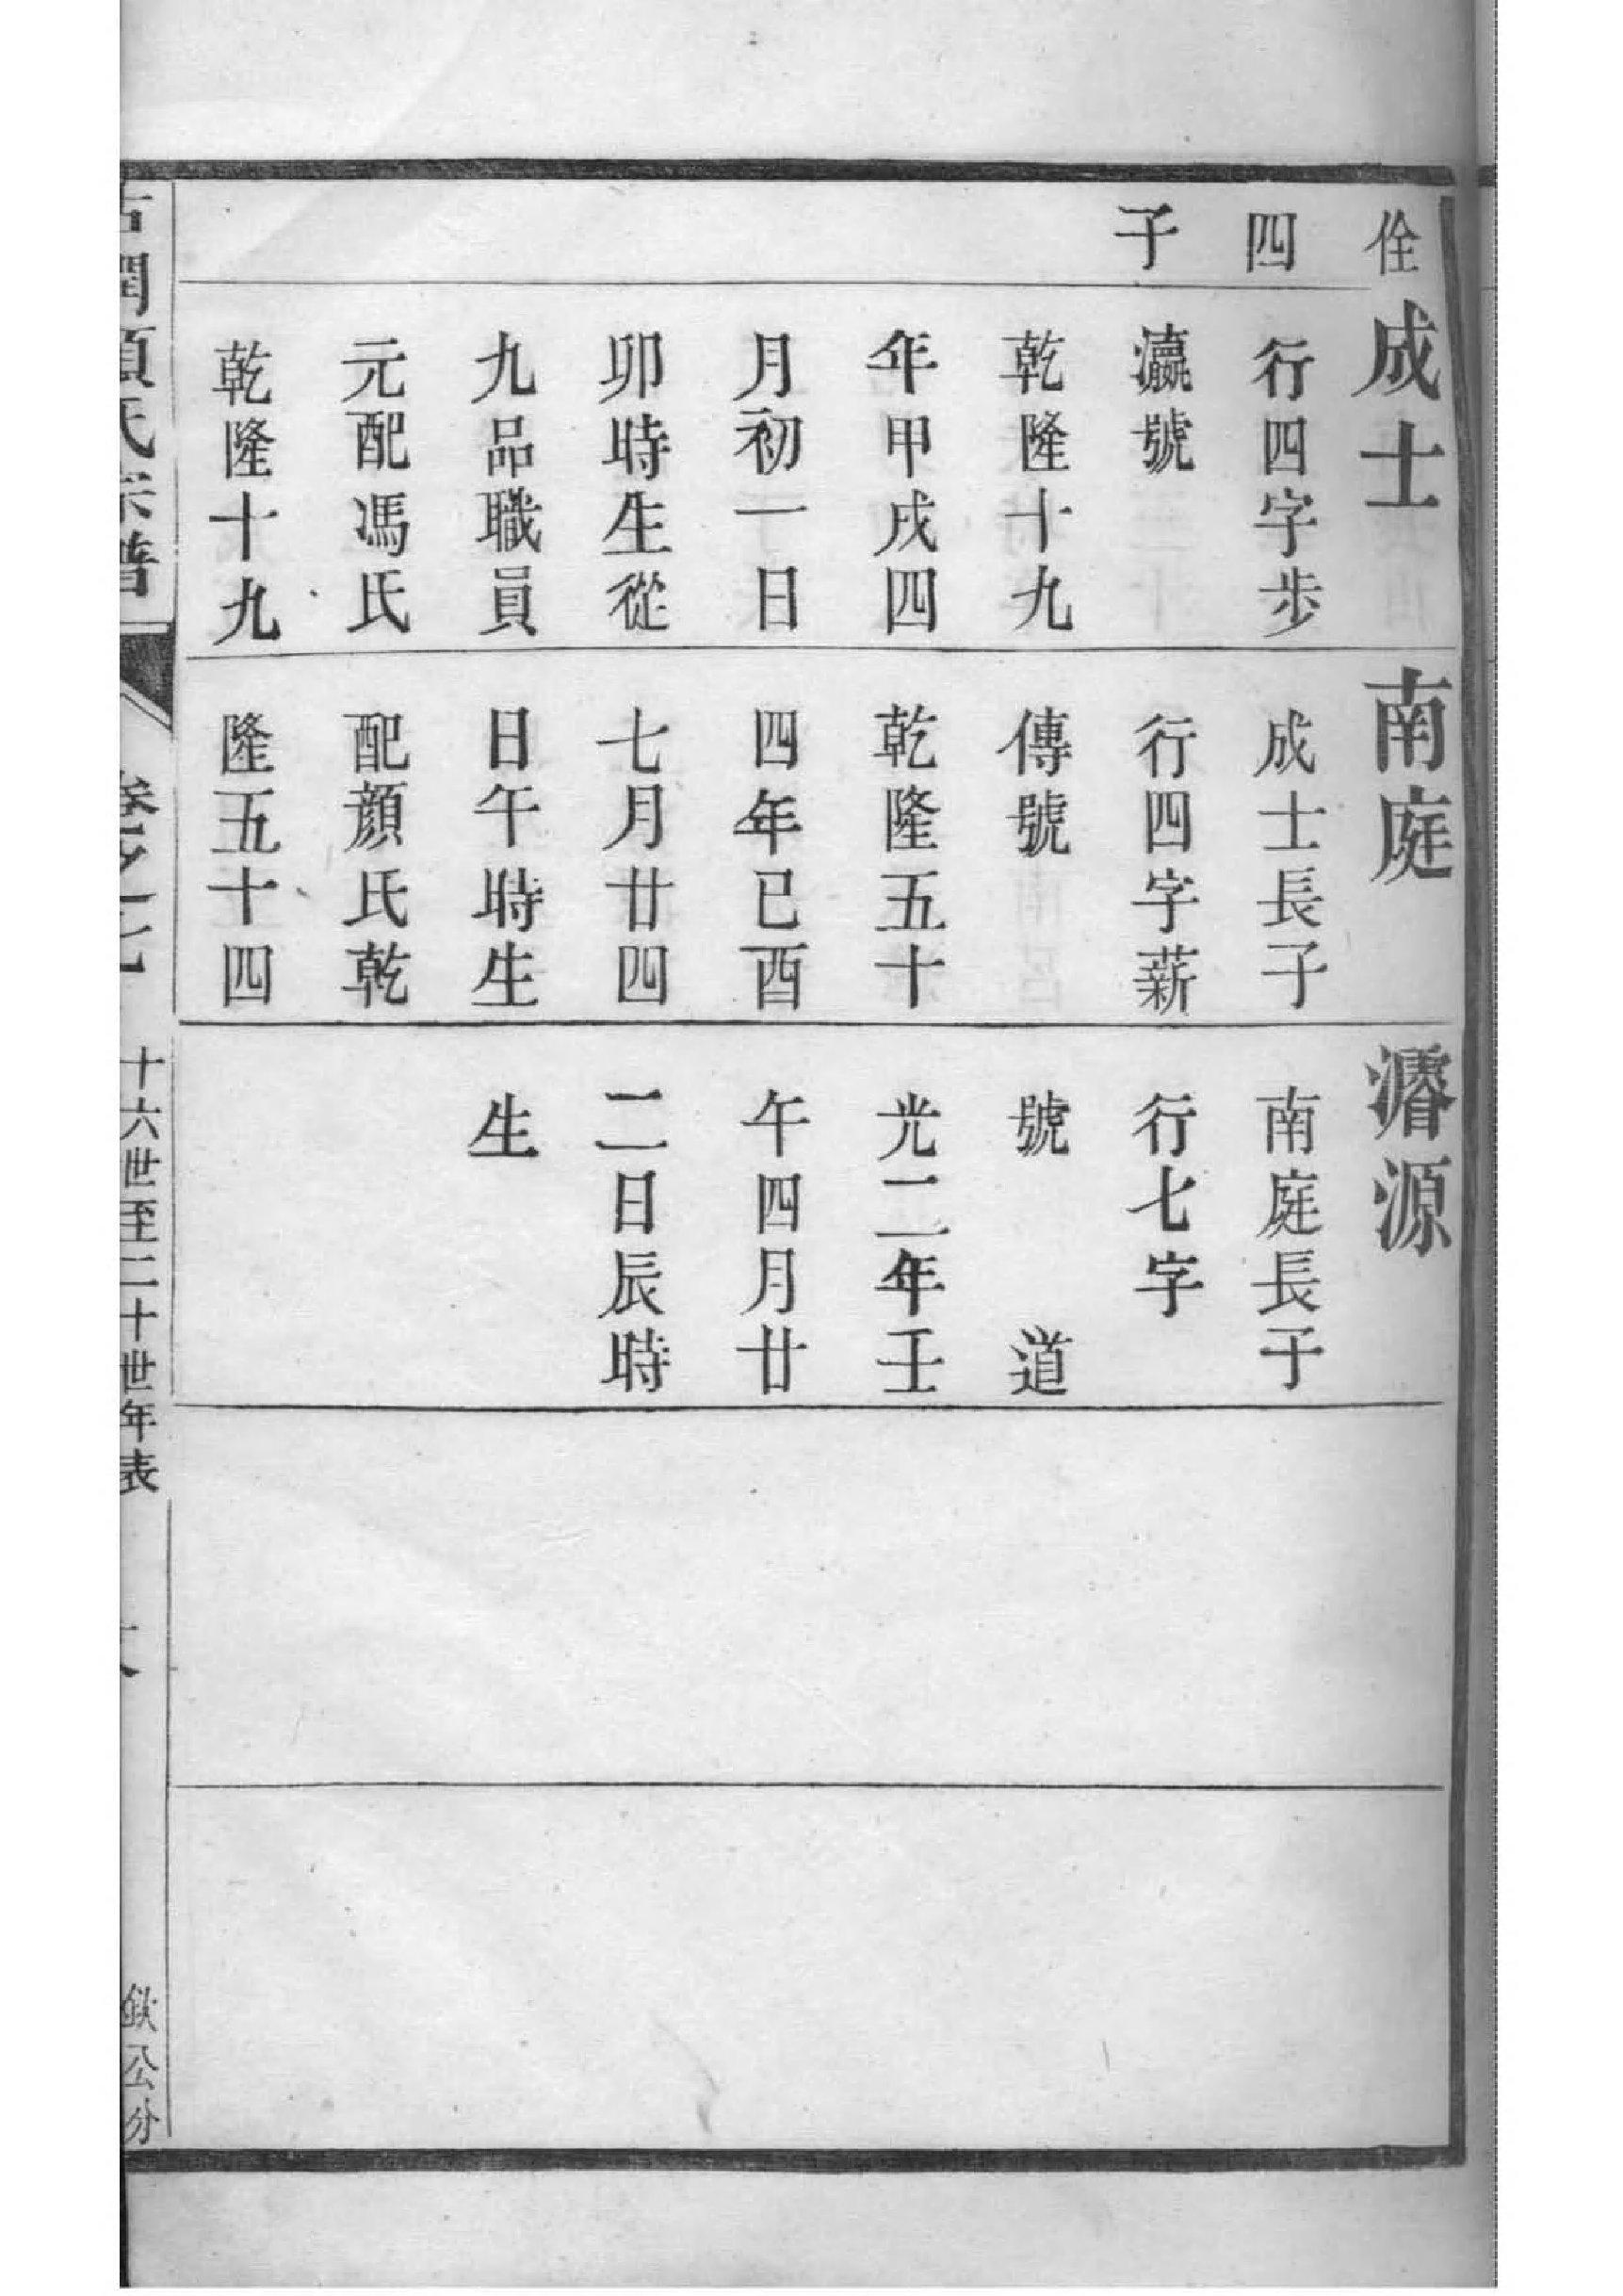 佺
四
子
成士
行四字步
瀛號
乾隆十九
年甲戌四
月初一日
卯時生從
九品職員
元配馮氏
乾隆十九
南庭
成士長子
行四字薪
傳號
乾隆五十
四年已酉
七月廿四
日午時生
配顏氏乾
隆五十四
濬源
南庭長子
行七字
號　道
光二年壬
午四月廿
二日辰時
生
氏宗譜
卷之七
十六世至二十世年表
公分